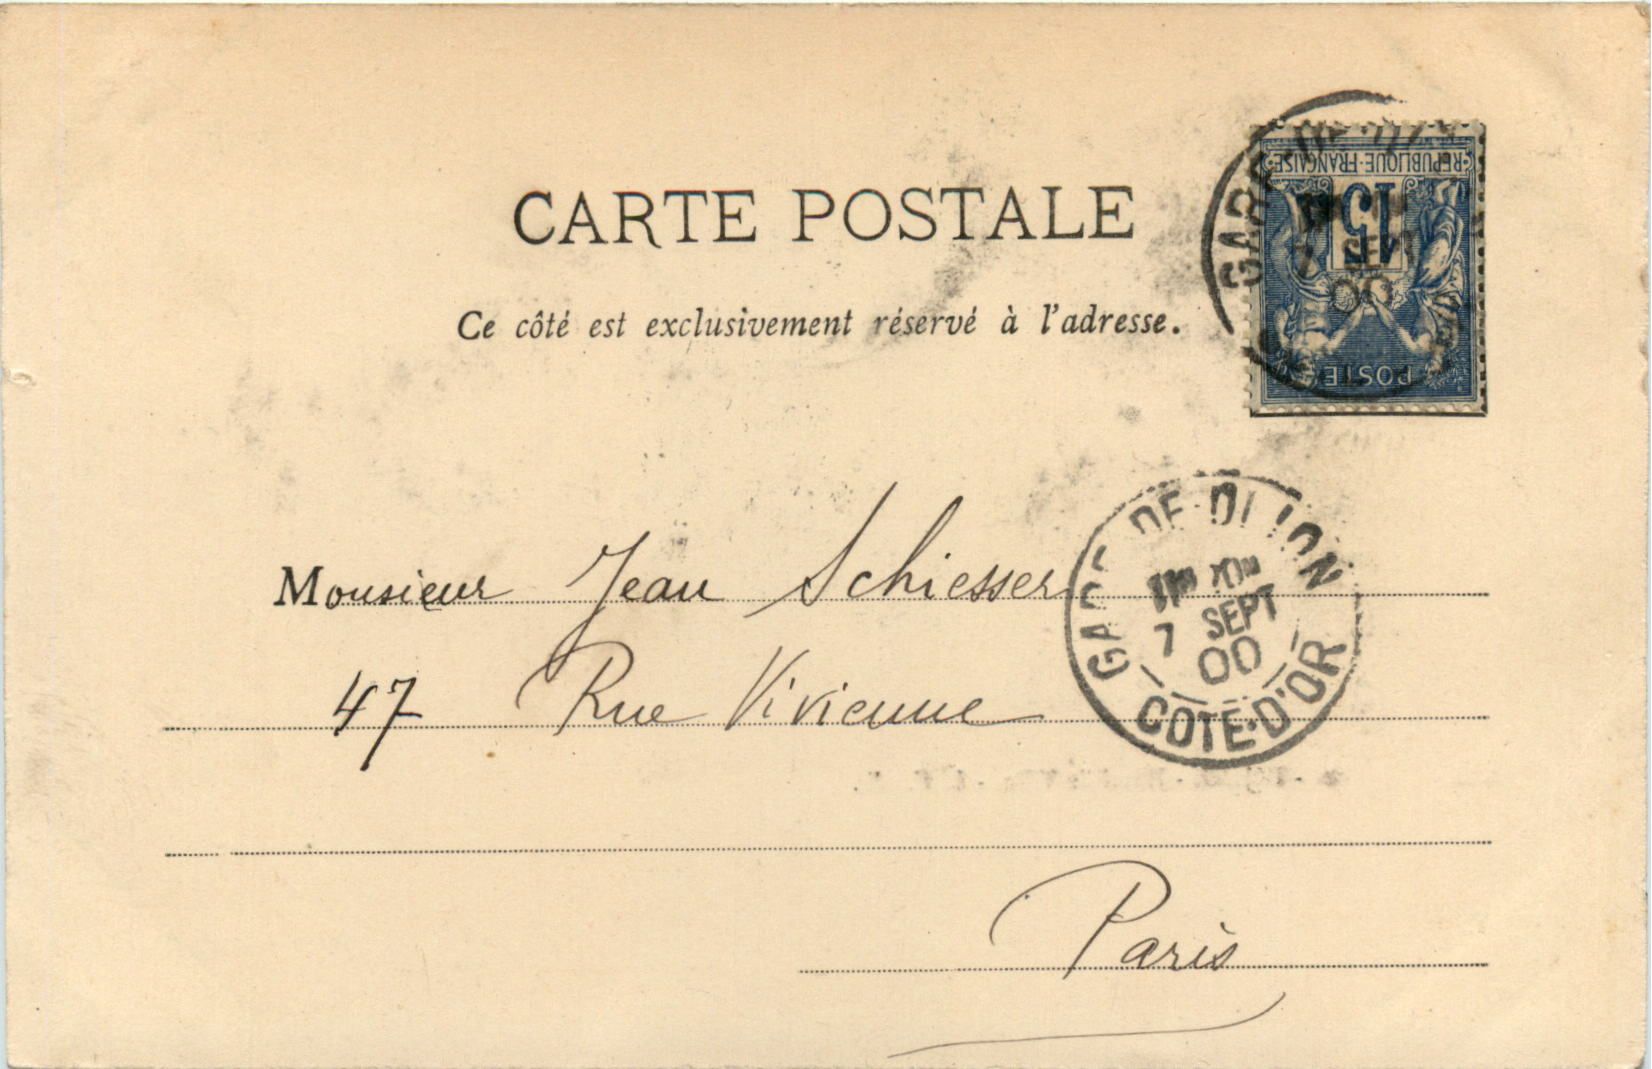 CARTE POSTALE
Ce côté est exclusivement réservé à l'adresse.
REPUBLIQUE·FRANÇAISE
15
POSTE
GARE-DE-DIJ
7 SEPT
00
Monsieur Jean Schiesser
47 Rue Vivienne
Paris
GARE DE DIJON
7 SEPT
00
COTE-D'OR